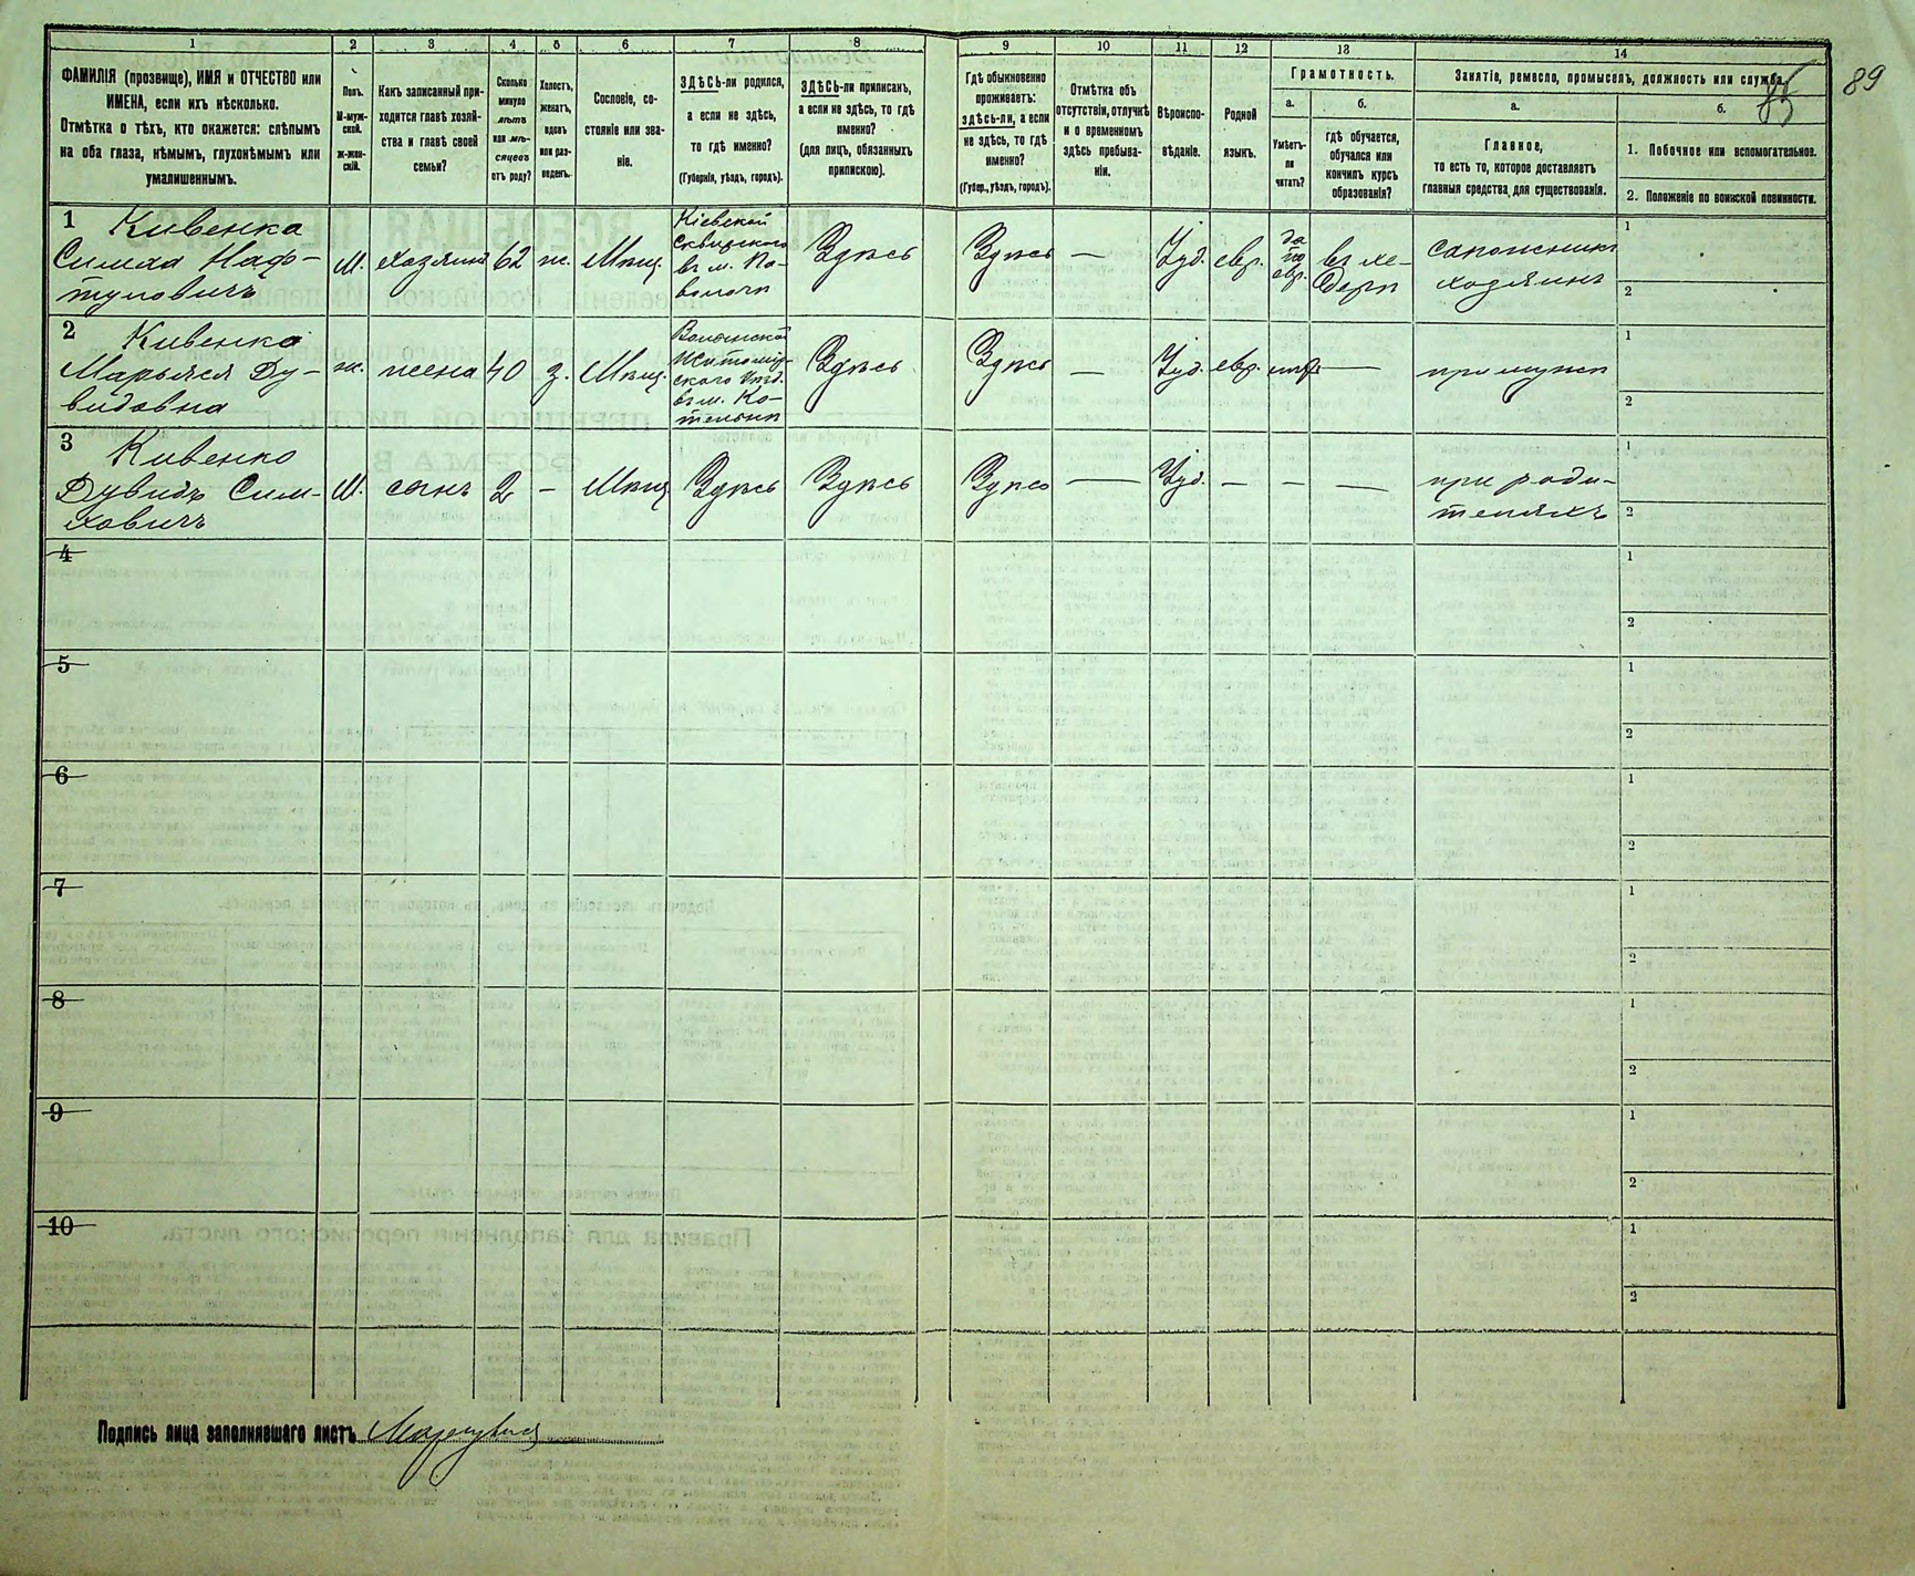 89
85
1
2
3
4
5
6
7
8
9
10
11
12
13
14
ФАМИЛІЯ (прозвище), ИМЯ и ОТЧЕСТВО или
ИМЕНА, если ихъ нѣсколько.
Отмѣтка о тѣхъ, кто окажется: слѣпымъ
на оба глаза, нѣмымъ, глухонѣмымъ или
умалишеннымъ.
Полъ.
М-муж-
ской.
Ж-жен-
скій.
Какъ записанный при-
ходится главѣ хозяй-
ства и главѣ своей
семьи?
Сколько
минуло
лѣтъ
или мѣ-
сяцевъ
отъ роду?
Холостъ,
женатъ,
вдовъ
или раз-
веденъ.
Сословіе, со-
стояніе или зва-
ніе.
ЗДѢСЬ-ли родился,
а если не здѣсь,
то гдѣ именно?
(Губернія, уѣздъ, городъ).
ЗДѢСЬ-ли приписанъ,
а если не здѣсь, то гдѣ
именно?
(для лицъ, обязанныхъ
припискою).
Гдѣ обыкновенно
проживаетъ:
здѣсь-ли, а если
не здѣсь, то гдѣ
именно?
(Губер., уѣздъ, городъ).
Отмѣтка объ
отсутствіи, отлучкѣ
и о временномъ
здѣсь пребыва-
ніи.
Вѣроиспо-
вѣданіе.
Родной
языкъ.
Грамотность.
а.
Умѣетъ-
ли
читать?
б.
гдѣ обучается,
обучался или
кончилъ курсъ
образованія?
Занятіе, ремесло, промыселъ, должность или служба.
а.
Главное,
то есть то, которое доставляетъ
главныя средства для существованія.
б.
1. Побочное или вспомогательное.
2. Положеніе по воинской повинности.
1 Кивенко
Симха Наф-
туловичъ
М.
хозяинъ
62
ж.
Мѣщ.
Кіевской
Сквирского
въ м. По-
волочи
Здѣсь
Здѣсь
—
Іуд.
евр.
да
по
евр.
въ хе-
дерѣ
сапожникъ
хозяинъ
1
2
2 Кивенко
Марьяся Ду-
видовна
ж.
жена
40
з.
Мѣщ.
Волынской
Житомір-
ского Уѣзд.
въ м. Ко-
тельнѣ
Здѣсь
Здѣсь
—
Іуд.
евр.
нѣтъ
—
при мужѣ
1
2
3 Кивенко
Дувидъ Сим-
ховичъ
М.
сынъ
2
—
Мѣщ
Здѣсь
Здѣсь
Здѣсь
—
Іуд.
—
—
—
при роди-
теляхъ
1
2
4
1
2
5
1
2
6
1
2
7
1
2
8
1
2
9
1
2
10
1
2
Подпись лица заполнявшаго листъ